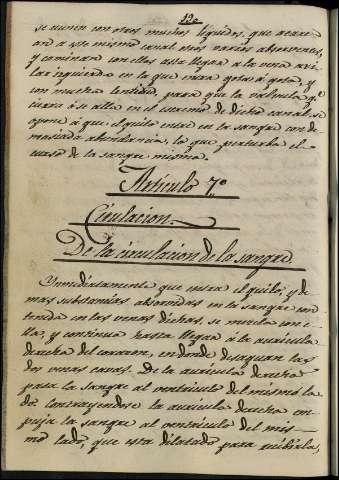 120
se unen con otros muchos liquidos, que acarre
an á este mismo canal otros varios absorventes,
y camina con ellos asta llegar á la vena axi
lar izquierda en la que entra gota á gota, y
con mucha lentitud, para que la válvula qe
situara ó se alla en el extremo de dicho canal se
opone á que el quilo entre en la sangre con de
masiada abundancia, lo que perturba el
curso de la sangre misma.
Articulo 7o
Circulacion.
De la circulacion de la sangre.
Ynmediatamente que entra el quilo, y de
mas substancias absorvidas en la sangre con
tenida en las venas dichas, se mezcla con e
lla, y continua hasta llegar á la auricula
derecha del corazon, en donde desaguan las
dos venas cavas. De la auricula derecha
pasa la sangre al ventriculo del mismo la
do contrayendose la auricula derecha em
puja la sangre al ventriculo del mis
mo lado, que esta dilatado para recibirla,